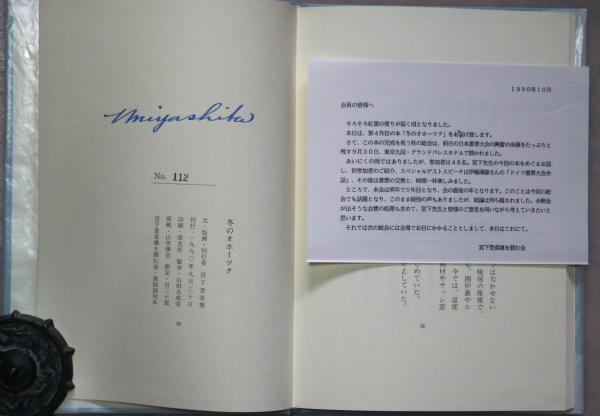 Miyashita
No. 112
冬のオホーツク
文・版画・刊行者 宮下登喜雄
刊行・一九九〇年九月三十日
印刷・栄光社 製本・山田大成堂
用紙・山田商会 限定・百二十部
宮下登喜雄を囲む会・第四回刊本
1990年10月
会員の皆様へ
そろそろ紅葉の便りが届く頃となりました。
本日は、第4作目の本「冬のオホーツク」をお届け致します。
さて、この本の完成を祝う秋の総会は、前日の日本書票大会の興奮の余韻をたっぷりと
残す9月30日、東京九段・グランドパレスホテルで開かれました。
あいにくの雨ではありましたが、参加者は48名。宮下先生の今回の本をめぐるお話
し、初参加者のご紹介、スペシャルゲストスピーチは伊藤満雄さんの「ドイツ書票大会余
話」、その後は書票の交換と、時間一杯楽しみました。
ところで、本会は明年で5年目となり、会の最後の年となります。このことは今回の総
会でも話題となり、このまま継続の声もありましたが、結論は持ち越されました。会剰金
が出そうな会費の処理も含めて、宮下先生と皆様のご意見を伺いながら考えていきたいと
思います。
それでは次の総会には会場でお目にかかることとしまして、本日はこれにて。
宮下登喜雄を囲む会